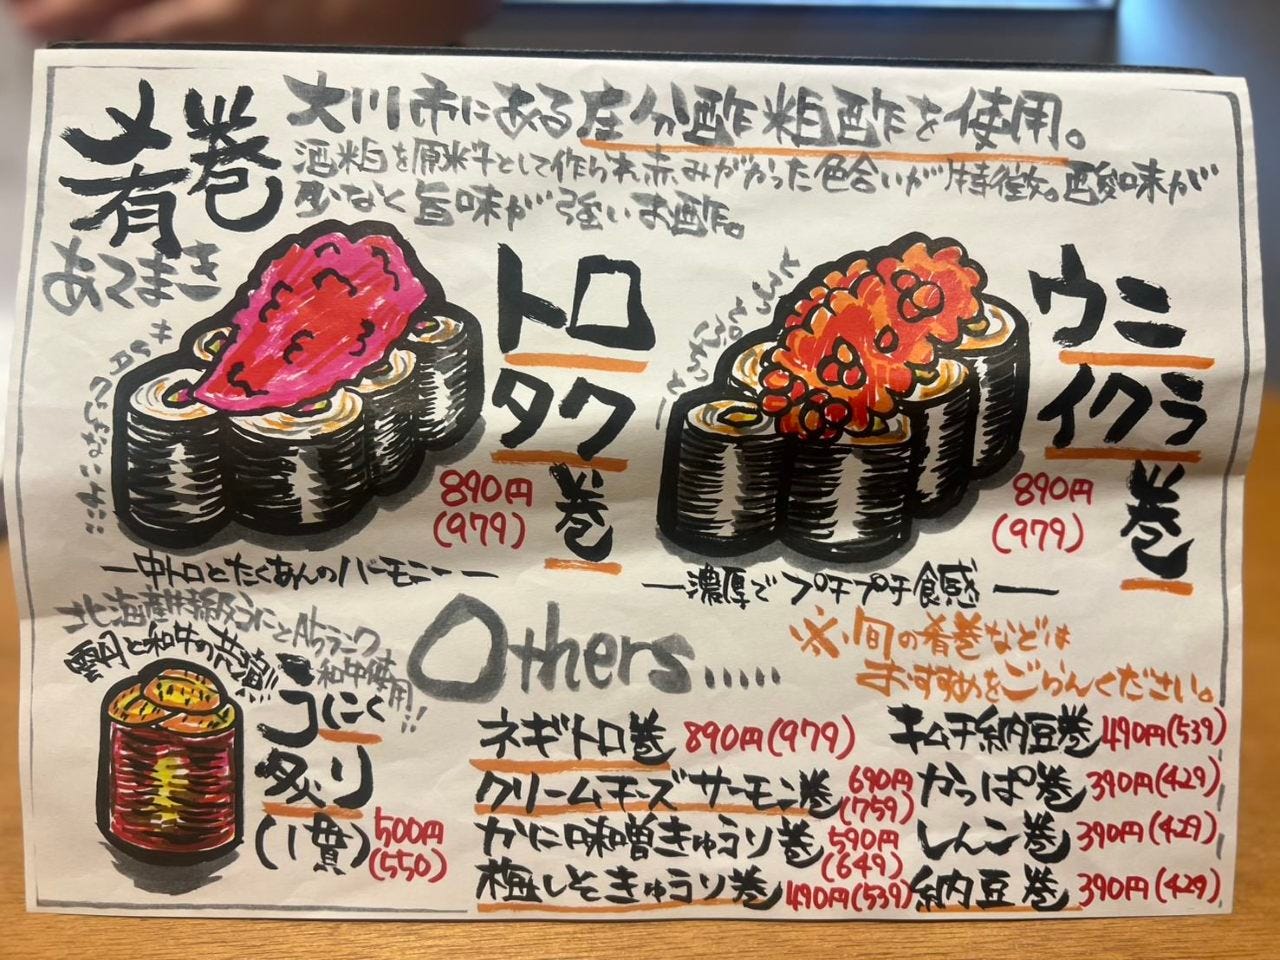 肴巻
あてまき
大川市にある庄分酢粕酢を使用。
酒粕を原料として作られ赤みがかった色合いが特徴。酸味が
少なく旨味が強いお酢。
トロ
タク
巻
890円
(979)
―中トロとたくあんのハーモニー―
ウニ
イクラ
巻
890円
(979)
―濃厚でプチプチ食感―
北海産特級うにとA5ランク
和牛使用!!
雲丹と和牛の共演!!
うにく
炙り
(1貫)
500円
(550)
Others.....
※旬の肴巻などは
おすすめをごらんください。
ネギトロ巻 890円(979)
クリームチーズサーモン巻 690円(759)
かに味噌きゅうり巻 590円(649)
梅しそきゅうり巻 490円(539)
キムチ納豆巻 490円(539)
かっぱ巻 390円(429)
しんこ巻 390円(429)
納豆巻 390円(429)